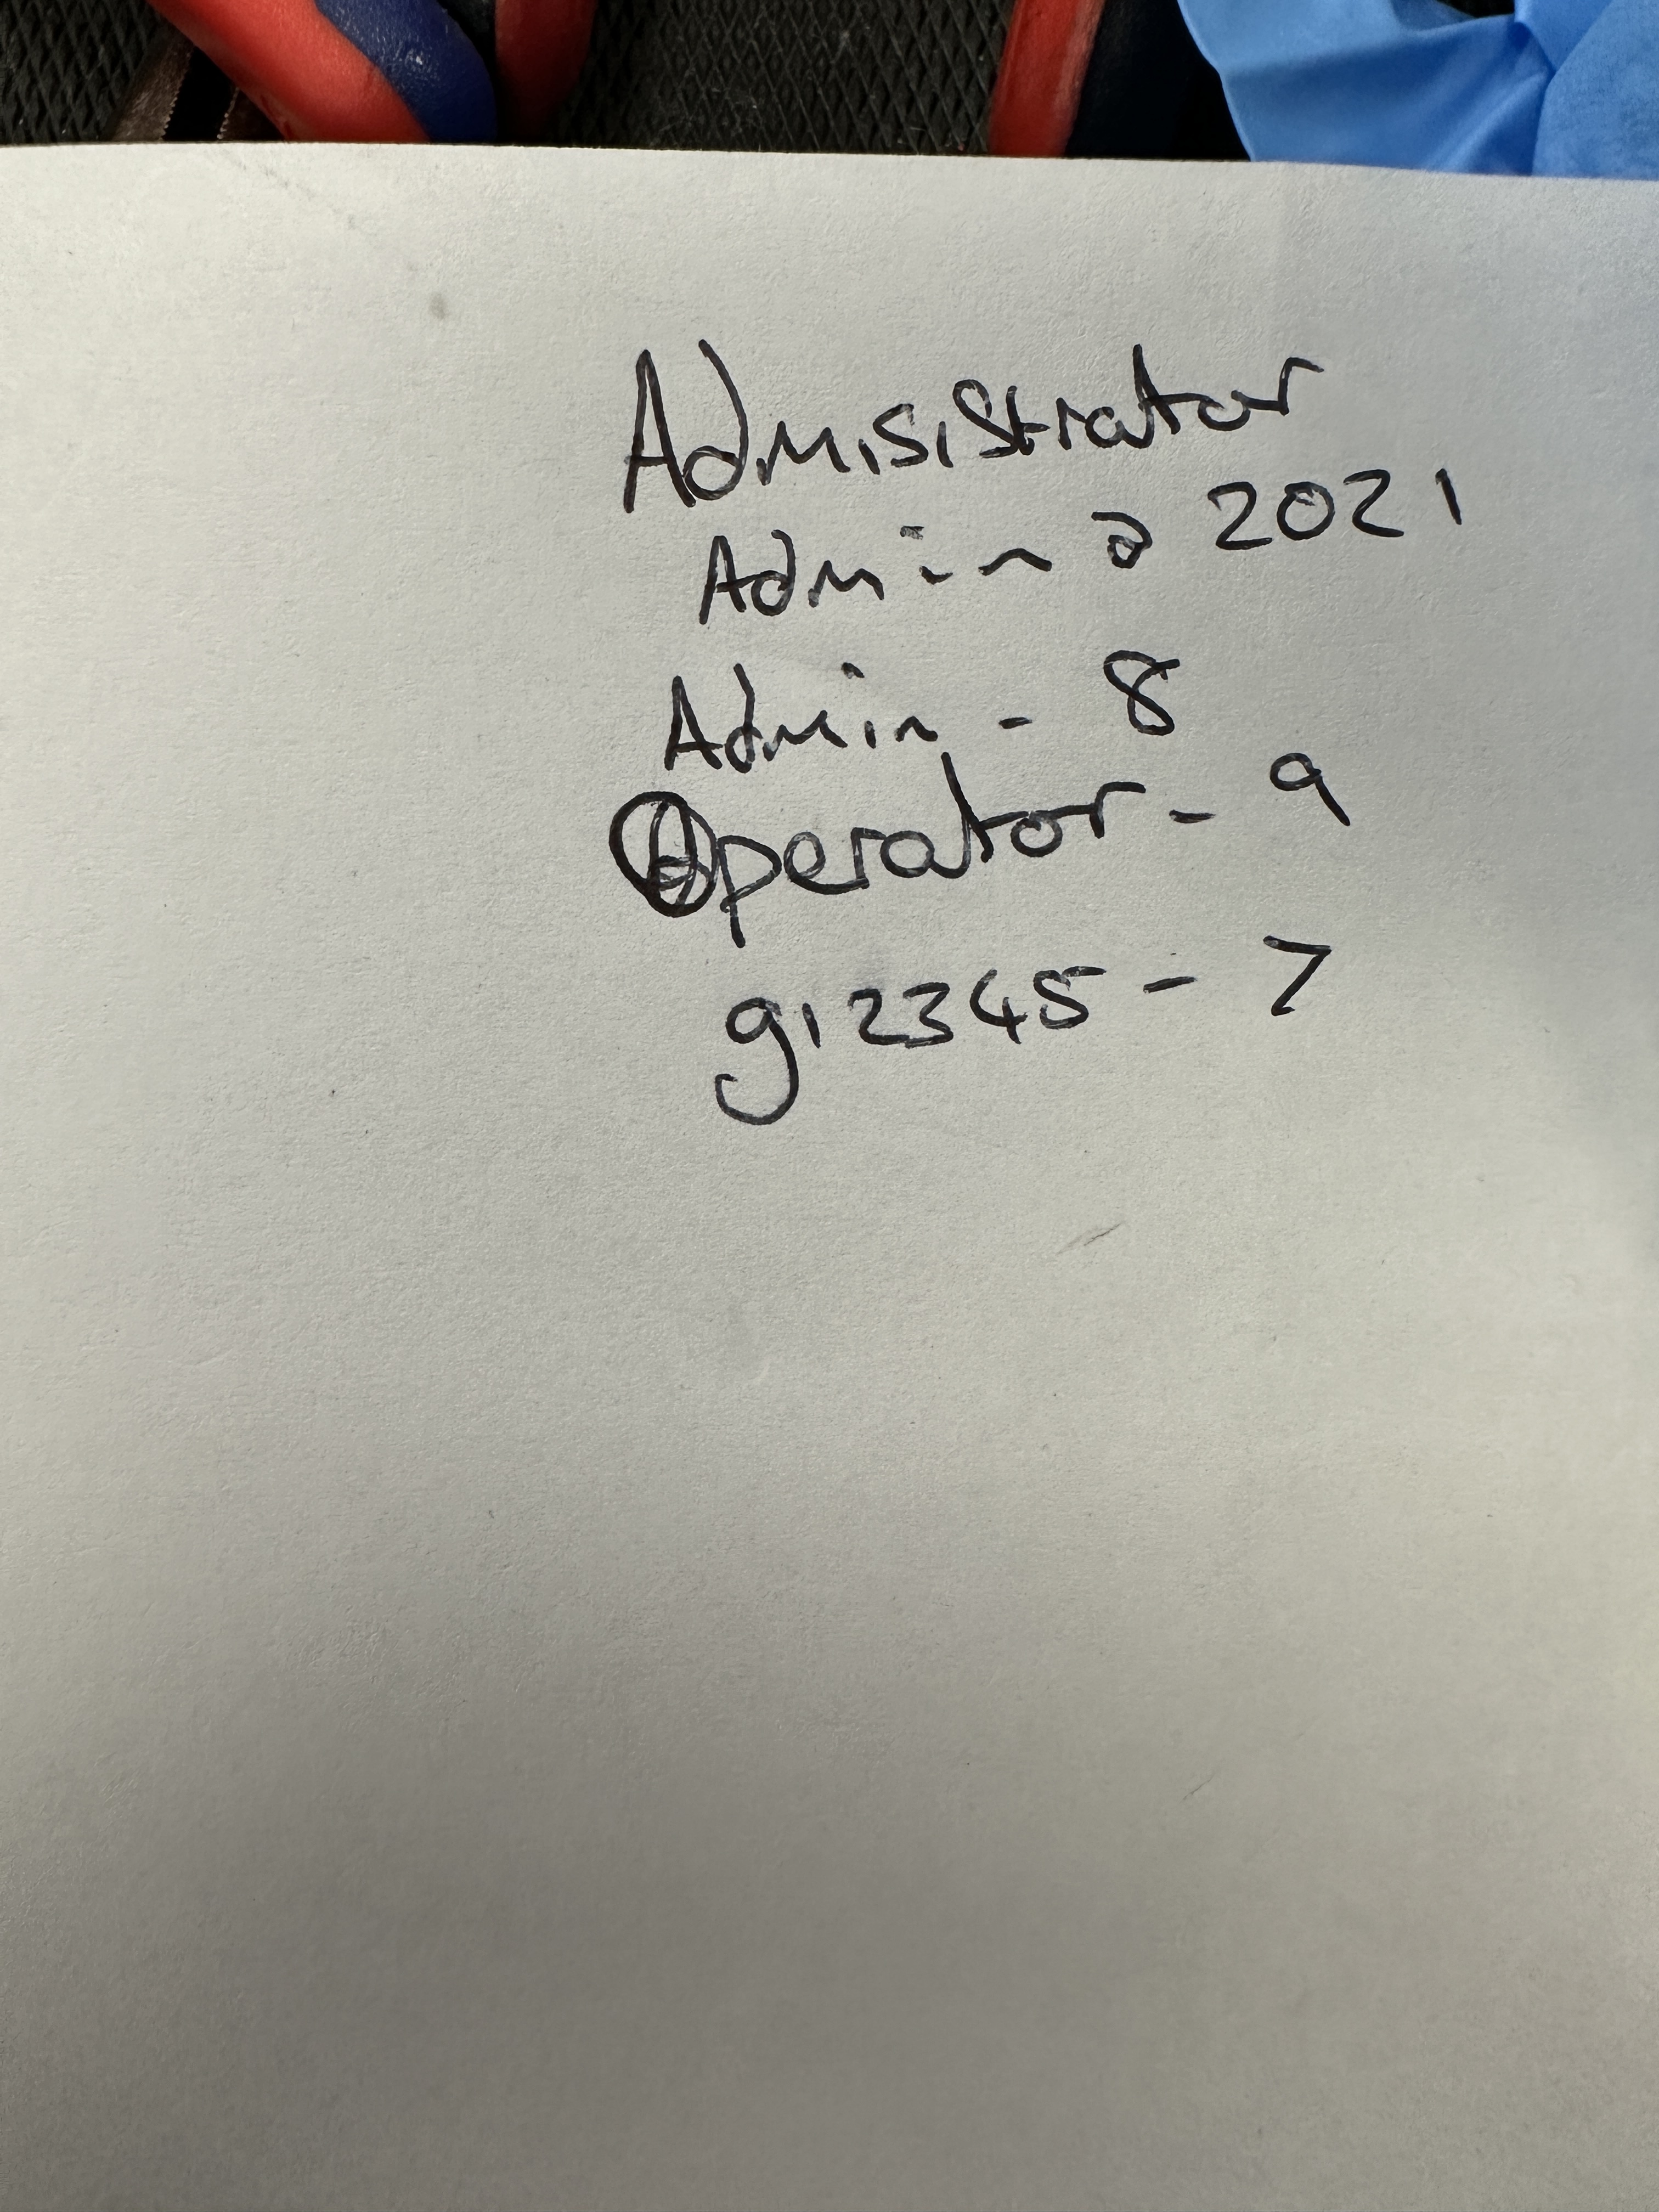 Admisistrator
Admin @ 2021
Admin - 8
Operator - 9
g12345 - 7